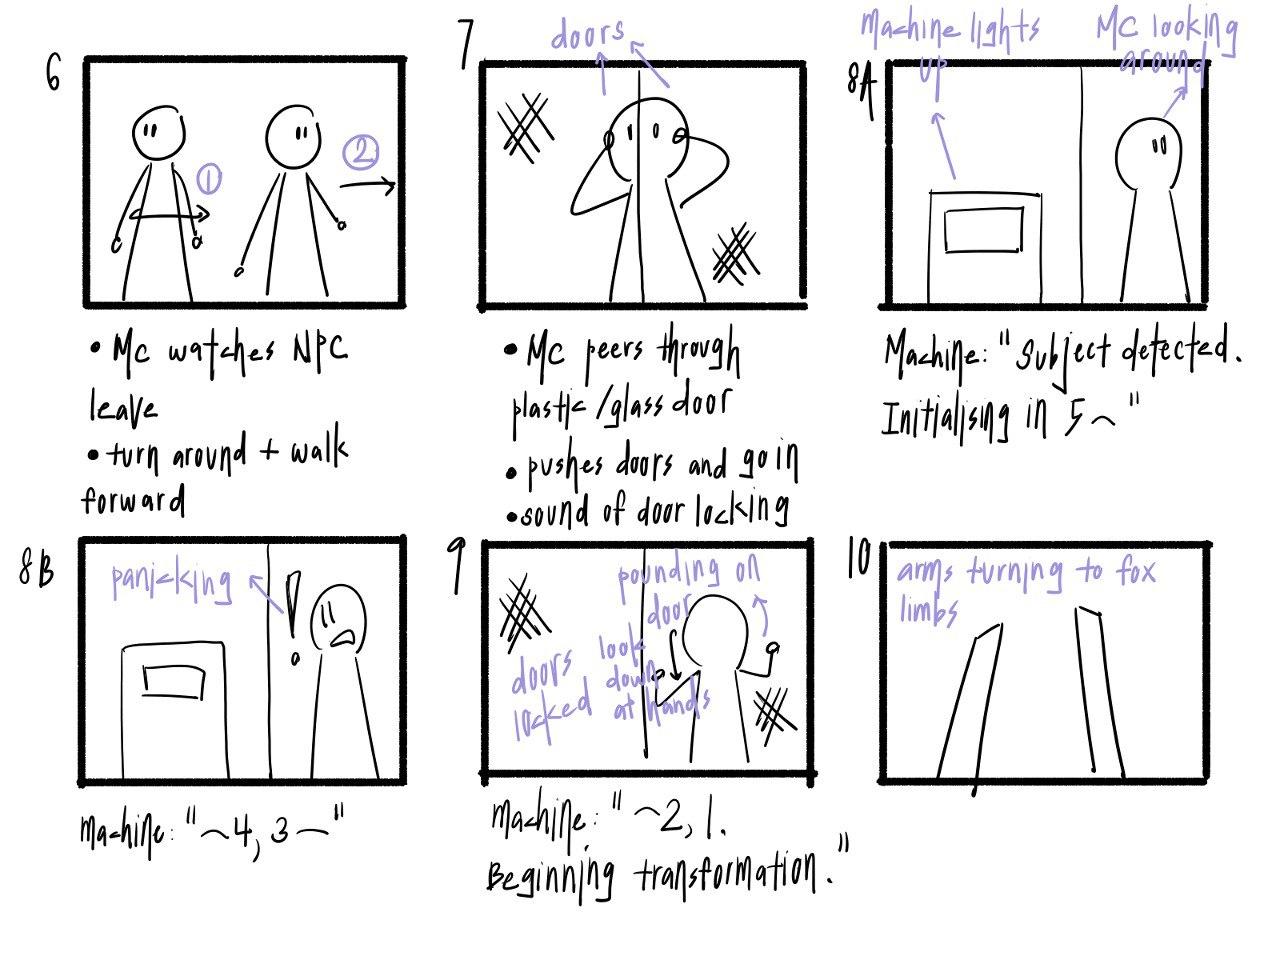 6
①
②
• MC watches NPC
leave
• turn around + walk
forward
7
doors
• MC peers through
plastic/glass door
• pushes doors and go in
• sound of door locking
8A
Machine lights
up
MC looking
around
Machine: "Subject detected.
Initialising in 5~"
8B
panicking
!
Machine: "~4, 3~"
9
pounding on
door
look
down
at hands
doors
locked
Machine: "~2, 1.
Beginning transformation."
10
arms turning to fox
limbs